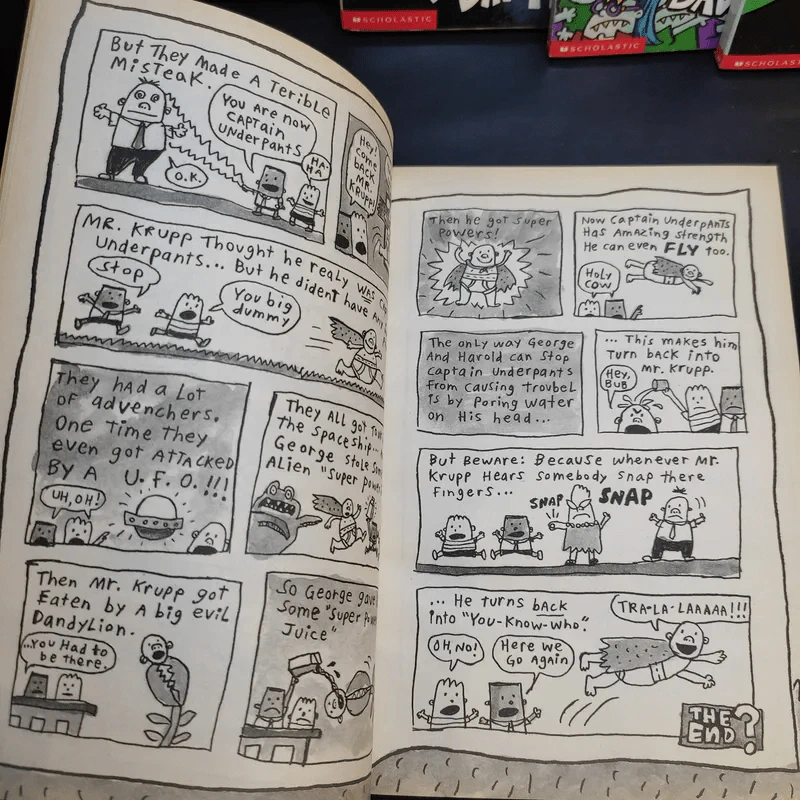 SCHOLASTIC
SCHOLASTIC
SCHOLAST
But They Made A Terible
MisTeak.
You Are now
CAPTain
UNderpants
HA-
HA
O.K.
Hey!
Come
back
MR.
KRUPP!
MR. KRUPP Thought he realy was
Underpants... But he dident have
Stop
You big
dummy
They had a Lot
of advenchers.
One time They
even got ATTAcked
By A U.F.O.!!!
UH, OH!
They All got
the spaceship...
George stole
Alien "Super
Then Mr. Krupp got
Eaten by A big evil
Dandylion.
...You Had to
be there.
So George gave
Some "Super
Juice"
Then he got super
Powers!
Now Captain UnderpANTs
Has Amazing strength
He can even FLY too.
HoLy
cow
The only way George
And Harold can Stop
Captain Underpants
from causing troubel
Is by Poring water
on His head...
... This makes him
Turn back into
Mr. Krupp.
Hey,
BUB
But Beware: Because whenever Mr.
Krupp Hears Somebody Snap there
Fingers...
SNAP
SNAP
... He turns bAck
into "You-Know-who".
TRA-LA-LAAAAA!!!
OH, No!
Here we
Go Again
THE
END?